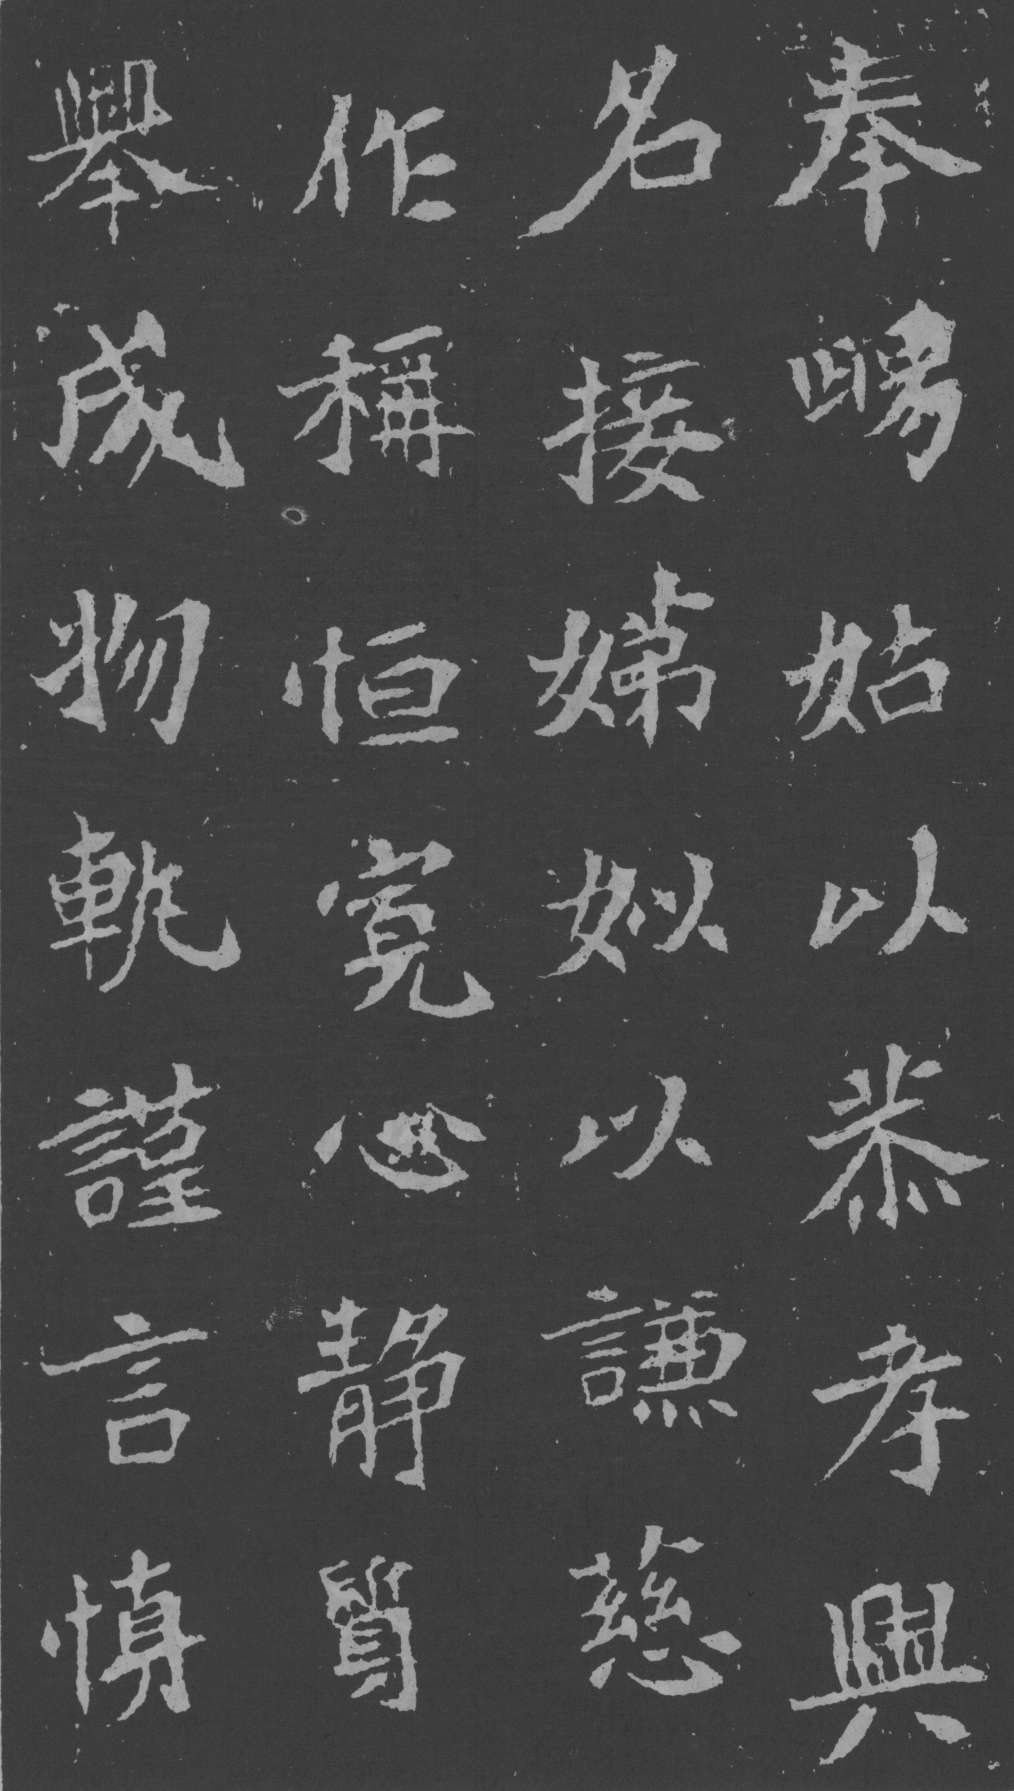 奉舅姑以恭孝興
名接娣姒以謙慈
作稱恒寬心静質
舉成物軌謹言慎